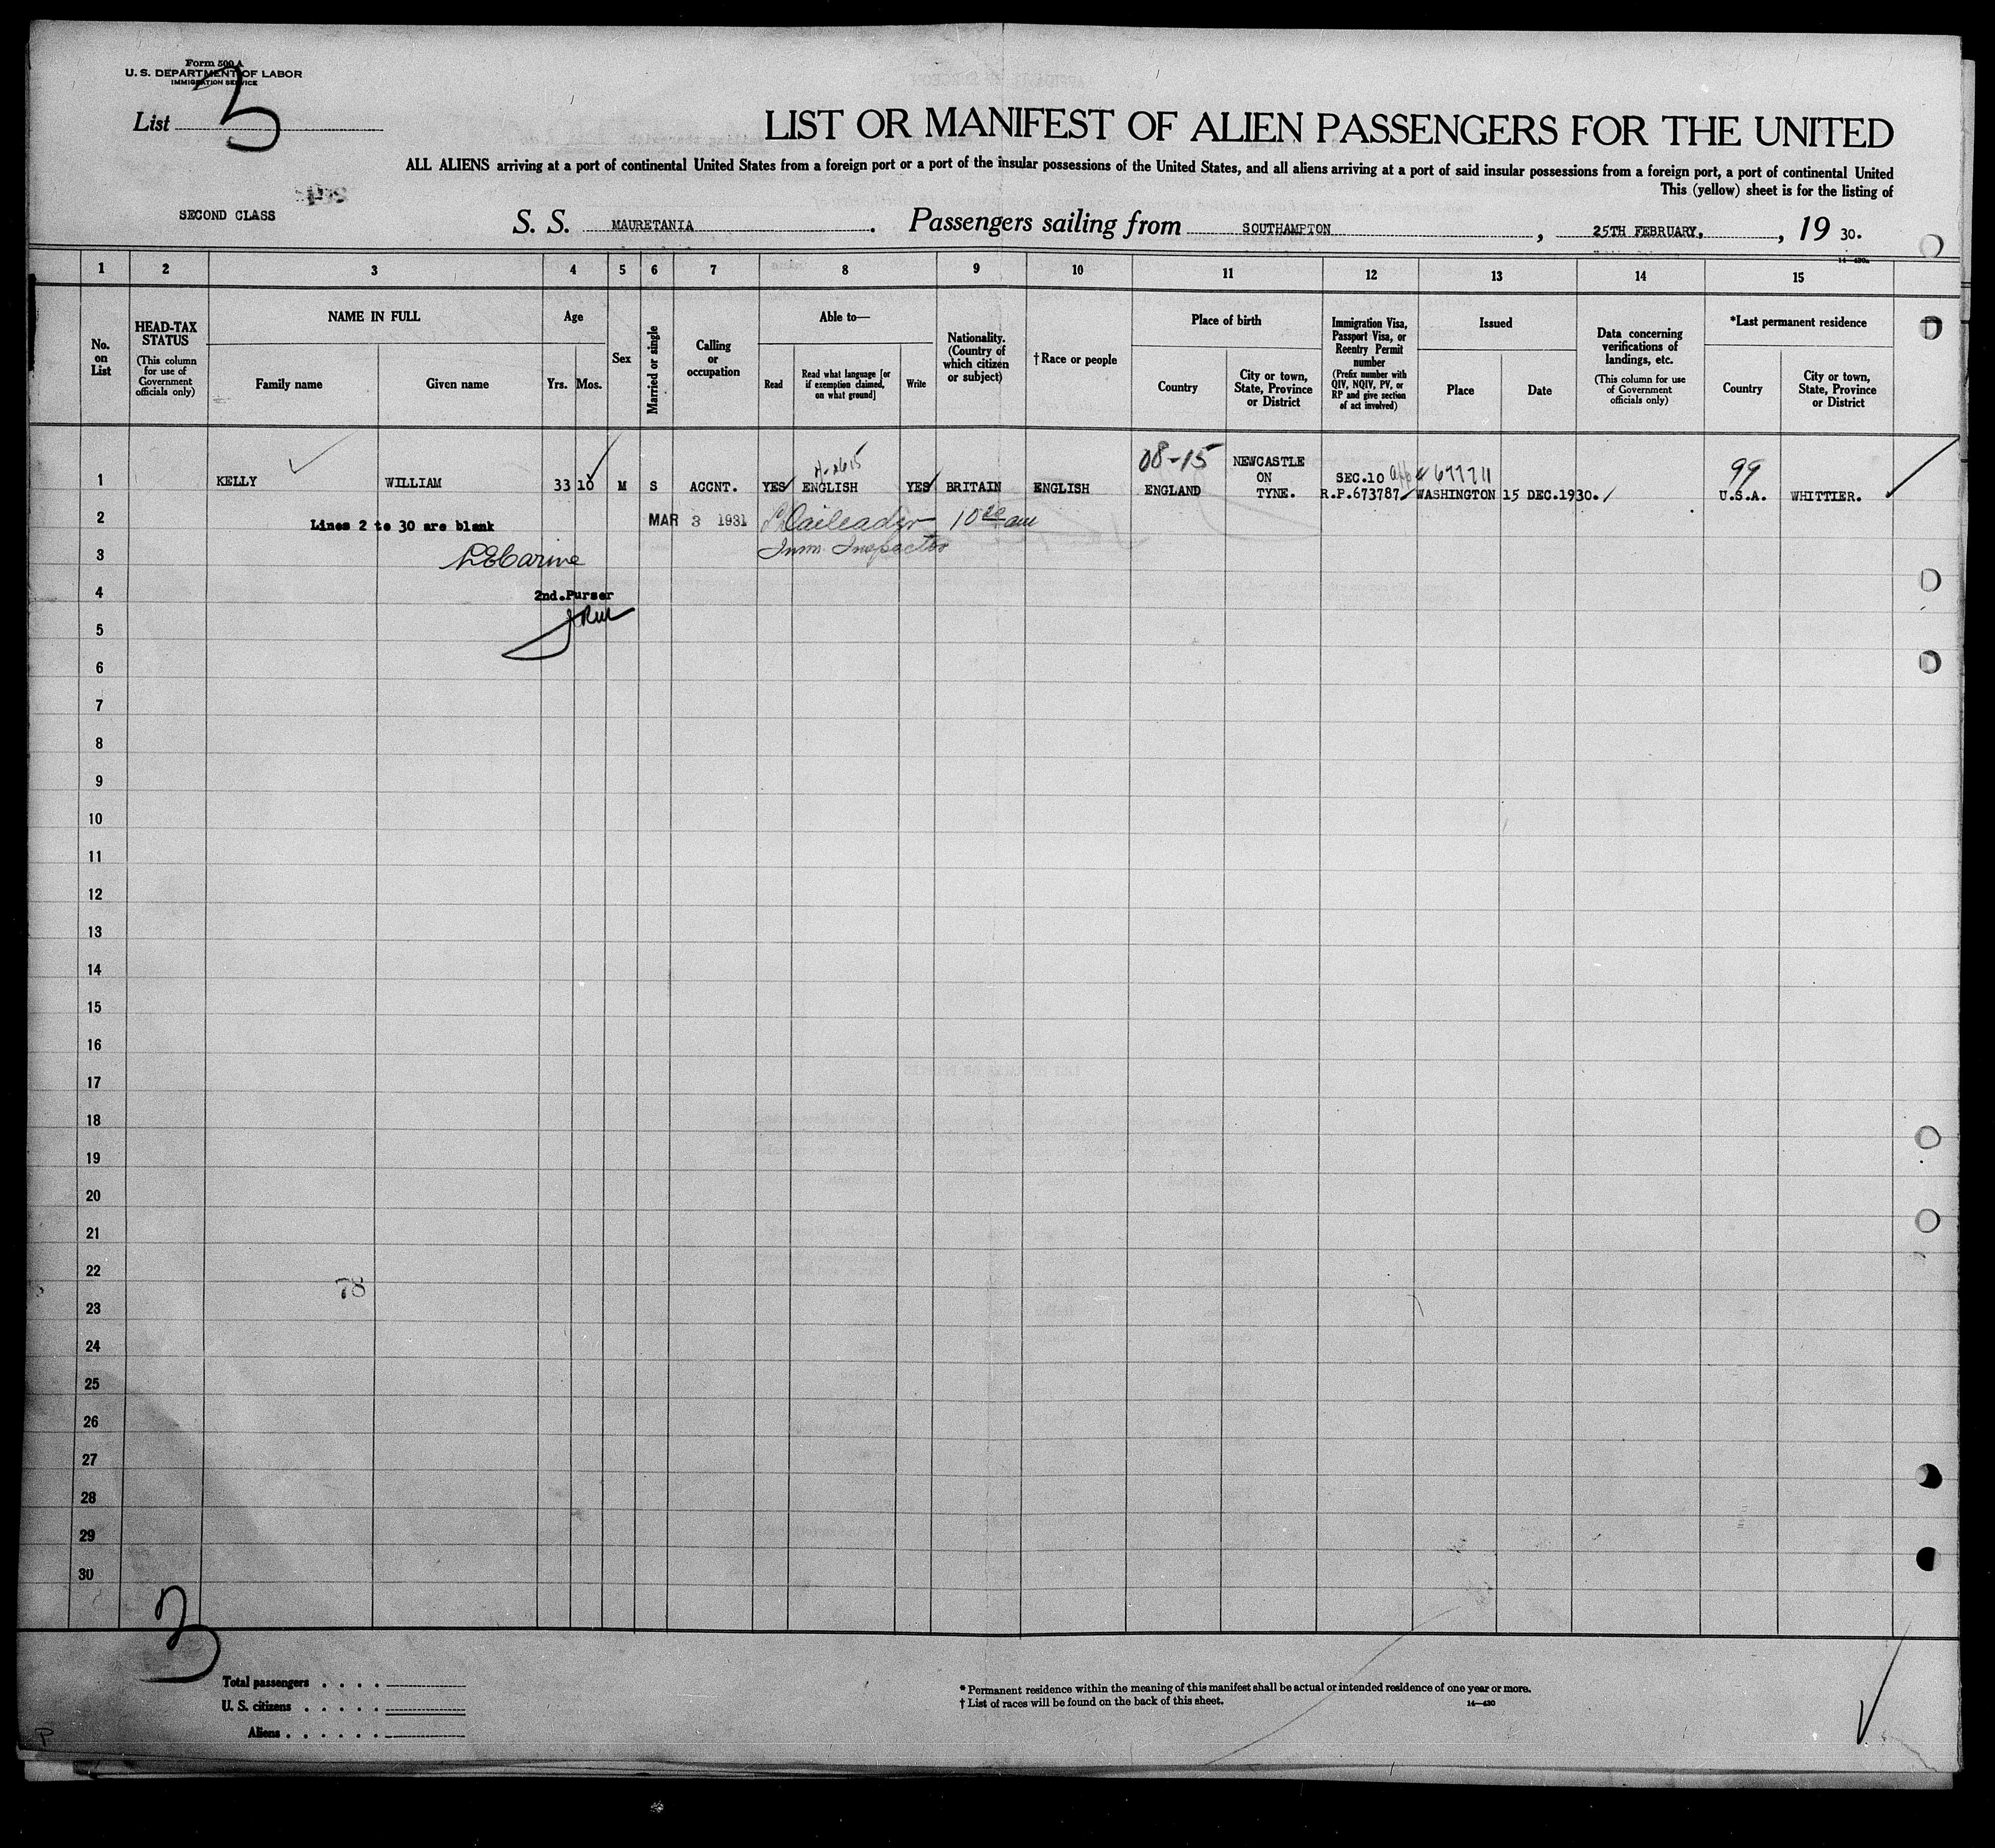 Form 500 A
U. S. DEPARTMENT OF LABOR
IMMIGRATION SERVICE
List 3
LIST OR MANIFEST OF ALIEN PASSENGERS FOR THE UNITED
ALL ALIENS arriving at a port of continental United States from a foreign port or a port of the insular possessions of the United States, and all aliens arriving at a port of said insular possessions from a foreign port, a port of continental United
This (yellow) sheet is for the listing of
SECOND CLASS
S. S. MAURETANIA. Passengers sailing from SOUTHAMPTON, 25TH FEBRUARY, , 19 30.
14—430a
1 2 3 4 5 6 7 8 9 10 11 12 13 14 15
No. on List
HEAD-TAX STATUS
(This column for use of Government officials only)
NAME IN FULL
Family name
Given name
Age
Yrs. Mos.
Sex
Married or single
Calling or occupation
Able to—
Read
Read what language [or if exemption claimed, on what ground]
Write
Nationality. (Country of which citizen or subject)
†Race or people
Place of birth
Country
City or town, State, Province or District
Immigration Visa, Passport Visa, or Reentry Permit number
(Prefix number with QIV, NQIV, PV, or RP and give section of act involved)
Issued
Place
Date
Data concerning verifications of landings, etc.
(This column for use of Government officials only)
*Last permanent residence
Country
City or town, State, Province or District
08-15 NEWCASTLE 99
1 KELLY WILLIAM 33 10 M S ACCNT. YES ENGLISH YES BRITAIN ENGLISH ENGLAND ON TYNE. SEC.10 R.P.673787 WASHINGTON 15 DEC.1930. U.S.A. WHITTIER.
2 Lines 2 to 30 are blank MAR 3 1931 10 20 am
Imm. Inspector
3
4 2nd.Purser
5
6
7
8
9
10
11
12
13
14
15
16
17
18
19
20
21
22
78
23
24
25
26
27
28
29
30
3
Total passengers . . . .
U. S. citizens . . . . .
Aliens . . . . . .
* Permanent residence within the meaning of this manifest shall be actual or intended residence of one year or more.
† List of races will be found on the back of this sheet.
14—430